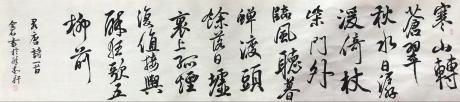 寒山轉
蒼翠
秋水日潺
湲倚杖
柴門外
臨風聽暮
蟬渡頭
餘落日墟
裏上孤煙
復值接輿
醉狂歌五
柳前
唐詩一首
書於